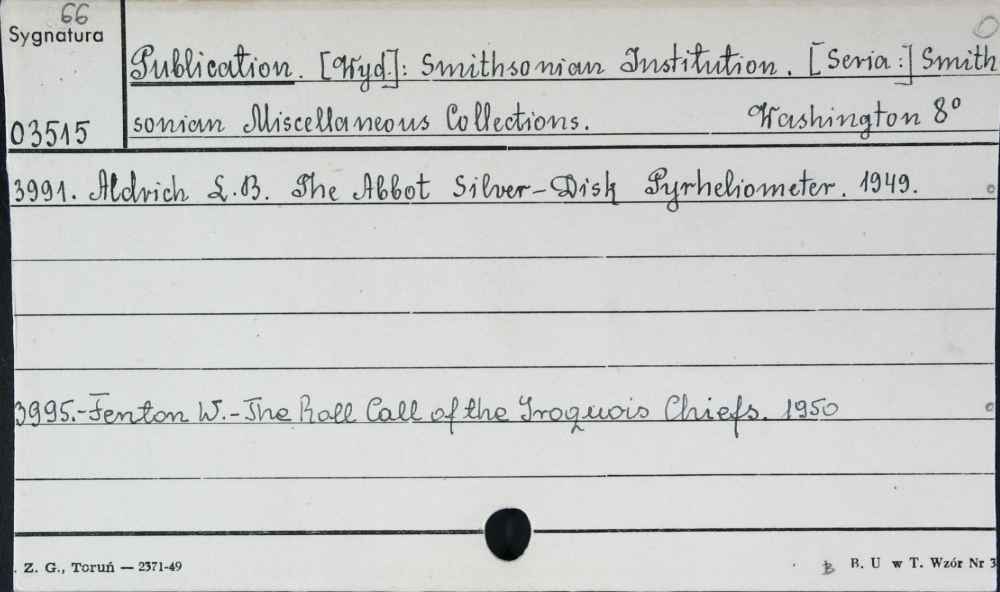 66
Sygnatura
O
Publication. [Wyd.]: Smithsonian Institution. [Seria:] Smith
03515 sonian Miscellaneous Collections. Washington 8°
3991. Aldrich L.B. The Abbot Silver-Disk Pyrheliometer. 1949.
3995.-Fenton W.-The Roll Call of the Iroquois Chiefs. 1950
. Z. G., Toruń — 2371-49
B. U w T. Wzór Nr 3